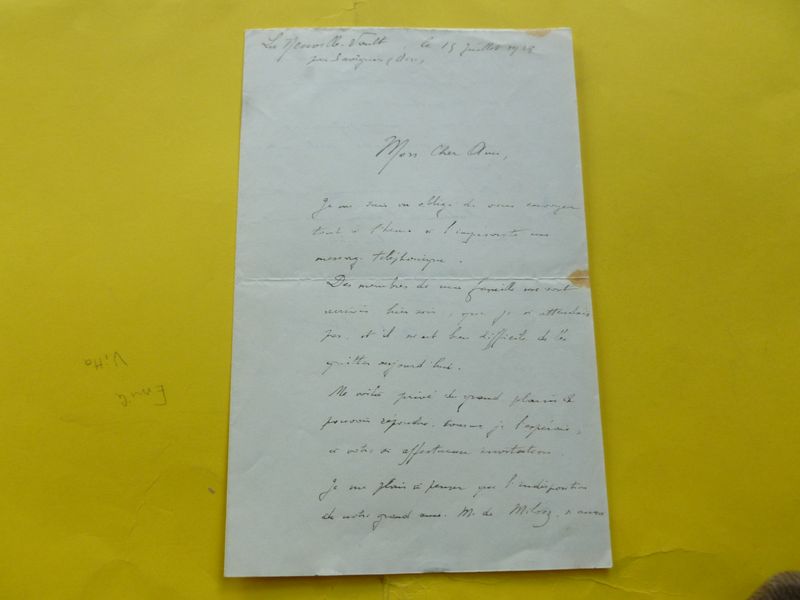 La Neuville-Vault, le 15 juillet 1928
par Savignies (Oise)
Mon cher Ami,
Je me suis vu obligé de vous envoyer
tout à l'heure à l'improviste un
message téléphonique.
Des membres de ma famille me sont
arrivés hier soir, que je n'attendais
pas, et il m'est bien difficile de les
quitter aujourd'hui.
Me voilà privé du grand plaisir de
pouvoir répondre, comme je l'espérais,
à votre si affectueuse invitation.
Je me plais à penser que l'indisposition
de notre grand ami, M. de Milosz, n'aura